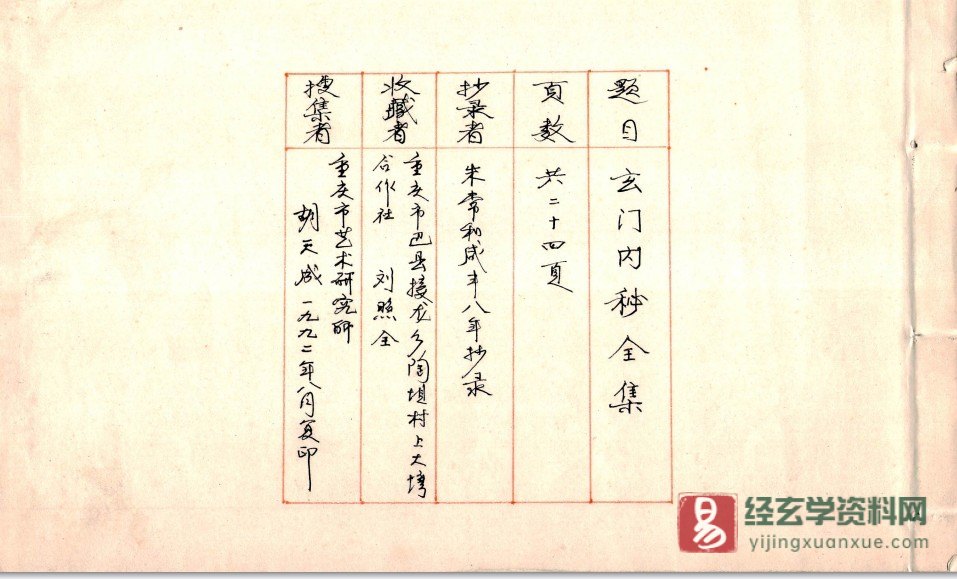 题目
玄门内秘全集
頁数
共二十四頁
抄录者
朱常和咸丰八年抄录
收藏者
重庆市巴县接龙乡陶坝村上大塆
合作社 刘照全
搜集者
重庆市艺术研究所
胡天成一九九二年八月复印
易
经玄学资料网
yijingxuanxue.com